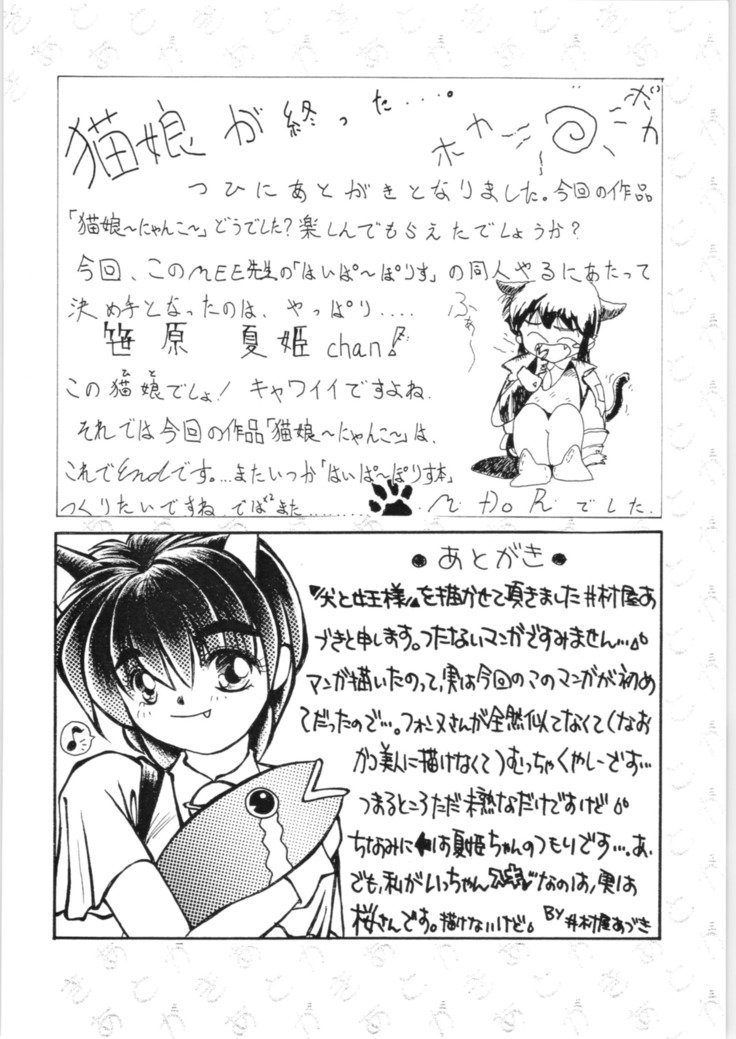 猫娘が終った…。
ポカ
ポカ
つひにあとがきとなりました。今回の作品
「猫娘〜にゃんこ〜」どうでした?楽しんでもらえたでしょうか?
今回、このMEE先生の「はいぱ〜ぽりす」の同人やるにあたって
決め手となったのは、やっぱり....
ふぁ〜
笹原 夏姫chan!
この猫娘でしょ!キャワイイですよね。
ひと
それでは今回の作品「猫娘〜にゃんこ〜」は、
これでEndです。…またいつか「はいぱ〜ぽりす本」
つくりたいですね では²また………
でした。
●あとがき●
『犬と女王様』を描かせて頂きました井村屋あ
づきと申します。つたないマンガですみません…。
マンガ描いたのって、実は今回のこのマンガが初め
てだったので…。フォンヌさんが全然似てなくて(なお
かつ美人に描けなくて)むっちゃくやしーです…
つまるところただ未熟なだけですけど。
ちなみに←は夏姫ちゃんのつもりです…。あ、
でも、私がいっちゃんなのは、実は
桜さんです。描けないけど。
BY井村屋あづき